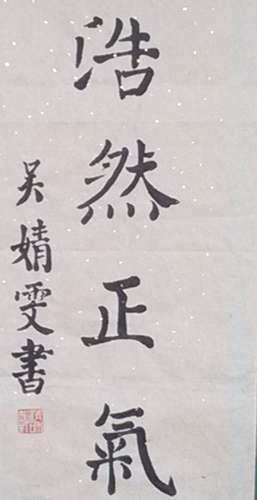 浩然正氣
吴婧雯書